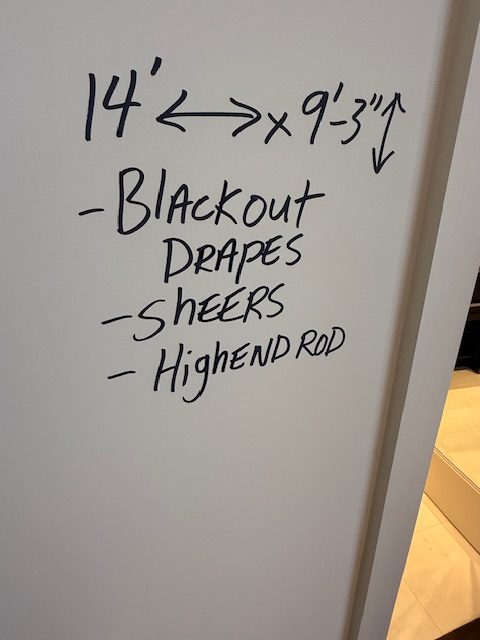 14' ↔ x 9'-3" ↕
- Blackout
DRAPES
- sheers
- Highend ROD